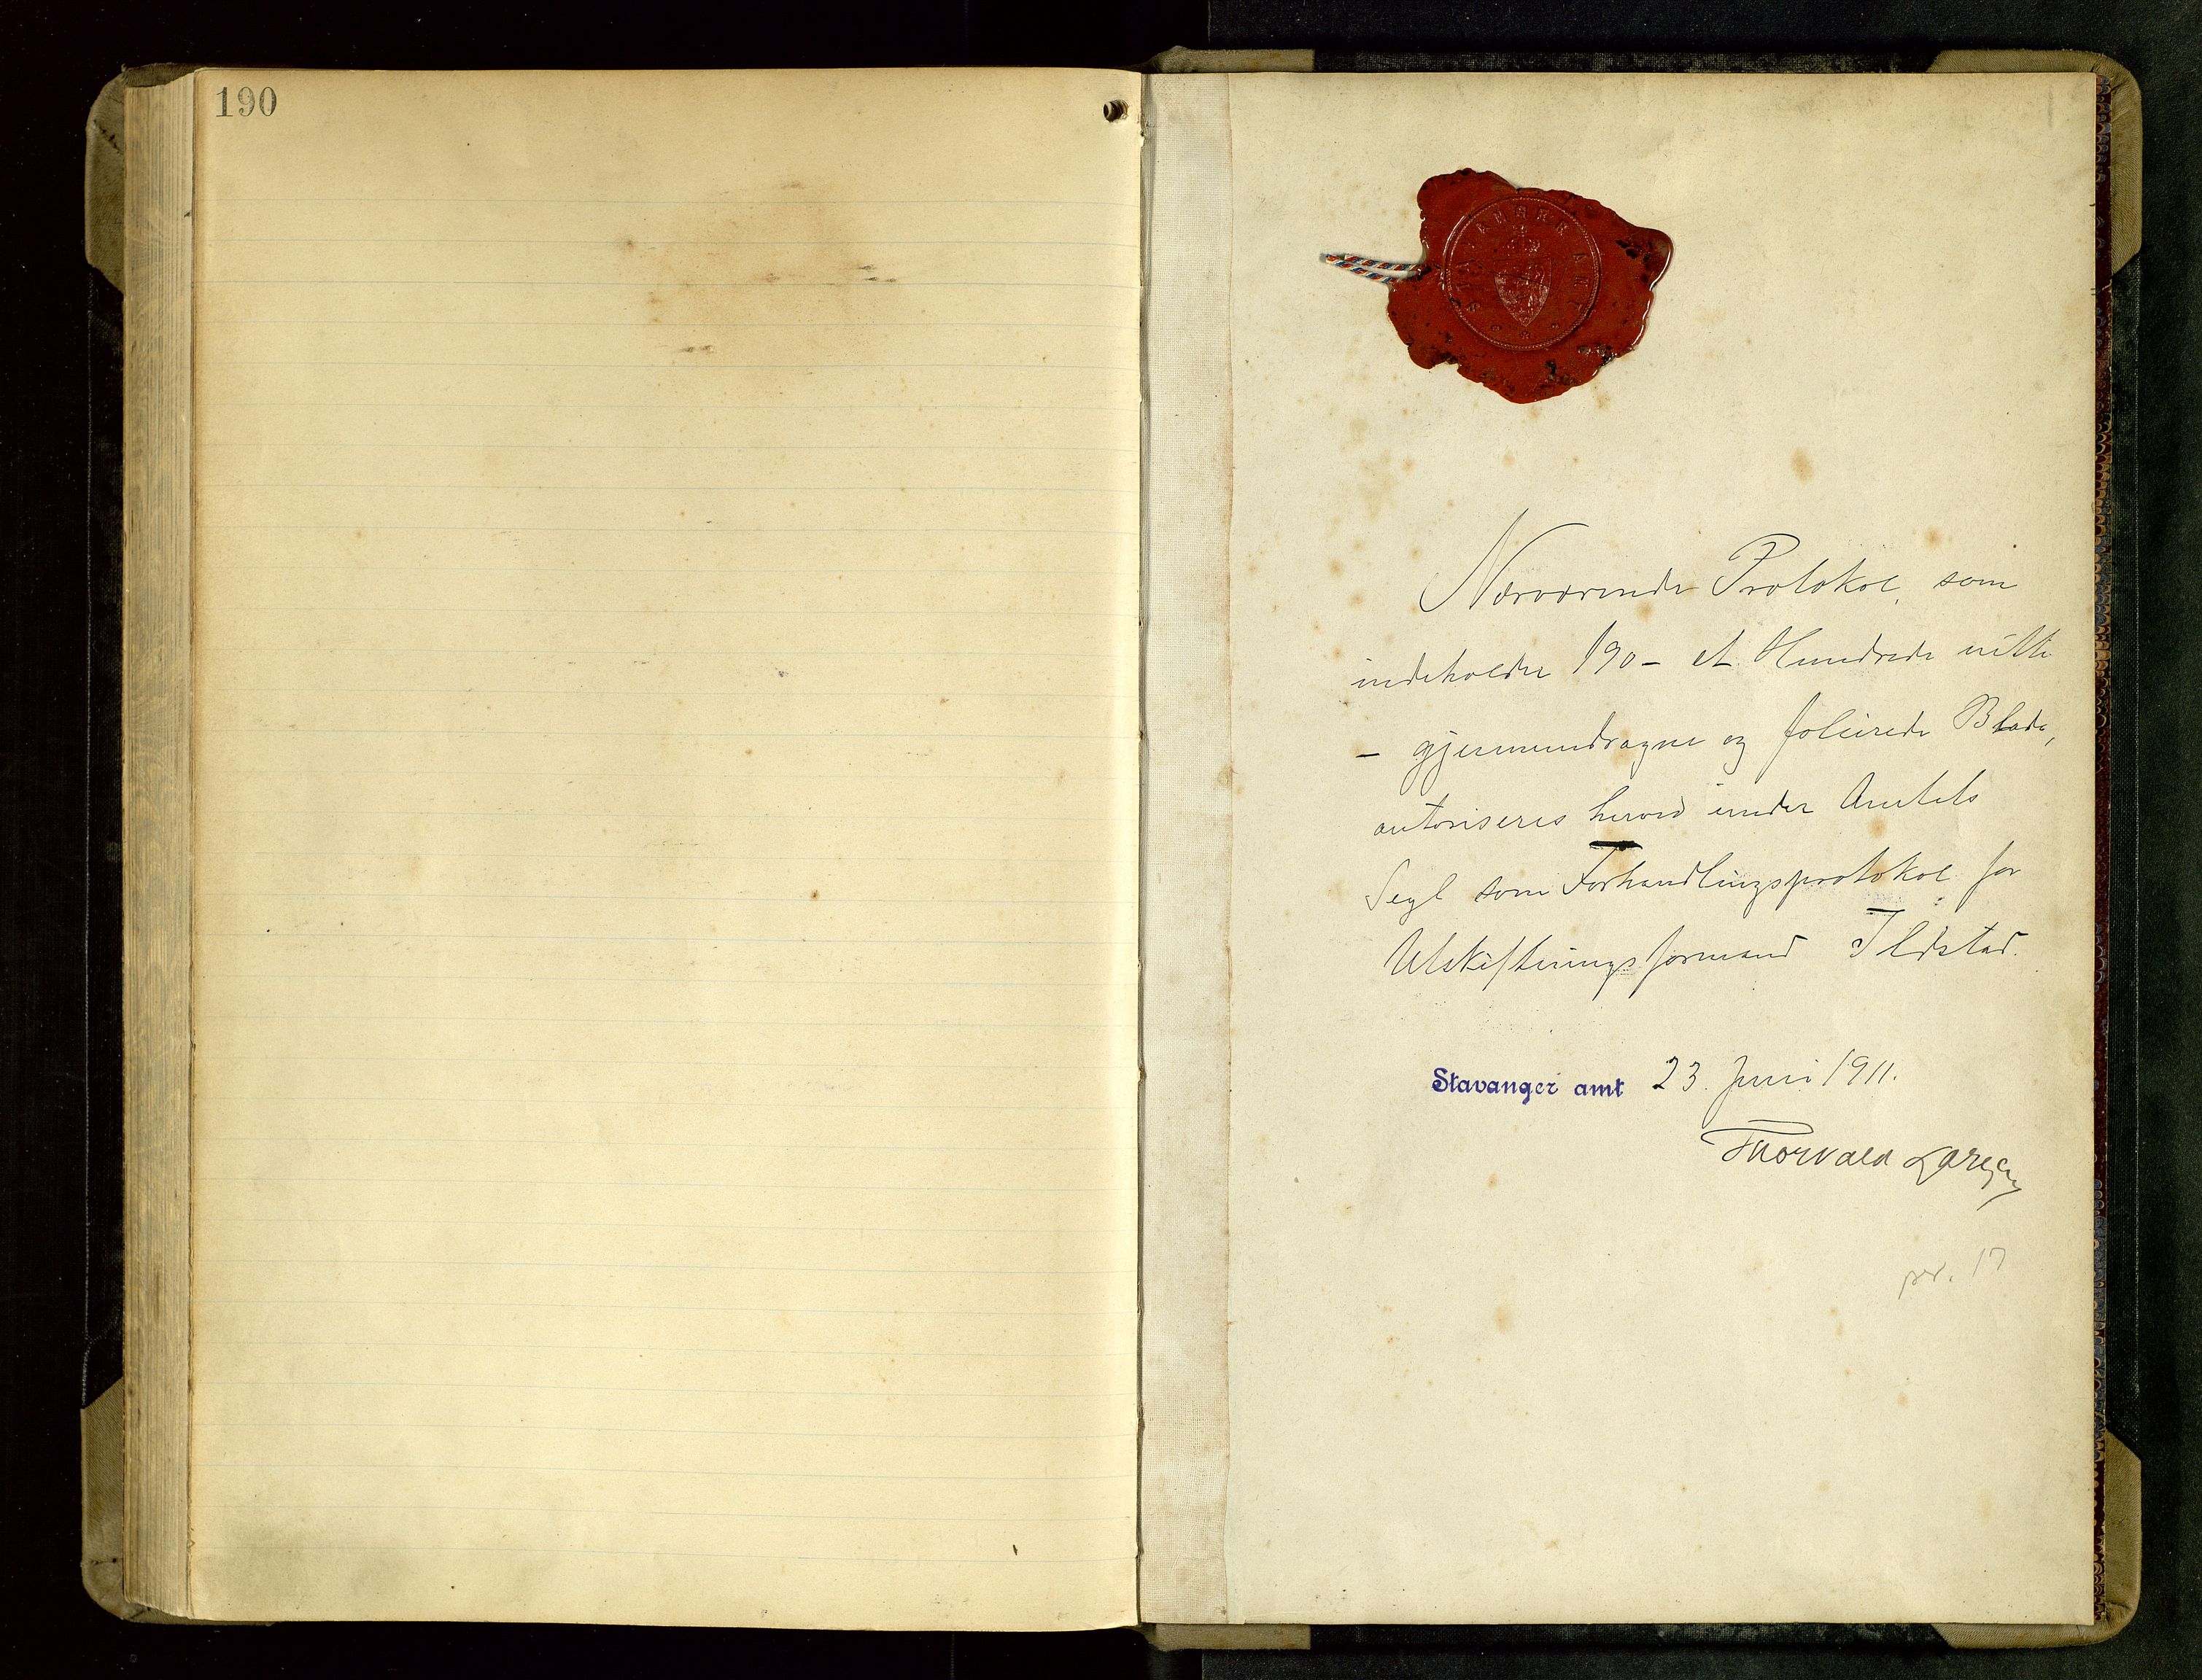 190
STAVANGER AMT
Nærværende Protokol, som
indeholder 190 - et Hundrede nitti
- gjennemdragne og folierede Blade,
autoriseres herved under Amtets
Segl som Forhandlingsprotokol for
Utskiftningsformand Ildstad.
Stavanger amt 23. Juni 1911.
Thorvald Larsen
17